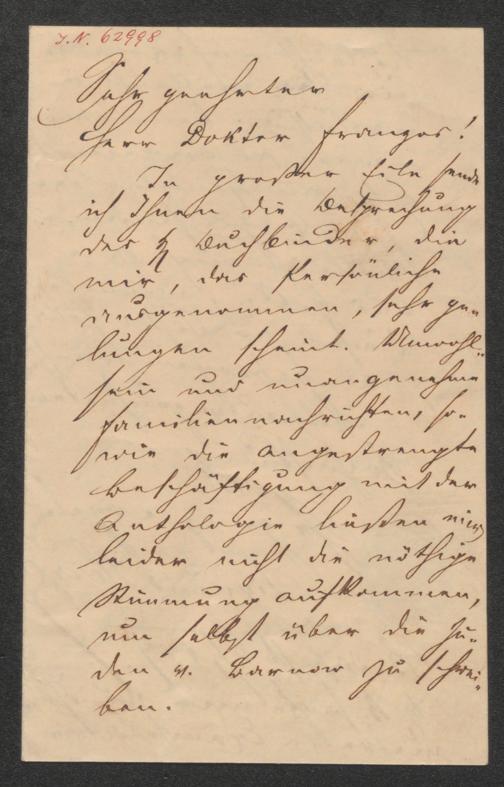 J.N. 62998
Sehr geehrter
Herr Doktor Franzos!
In großer Eile sende
ich Ihnen die Besprechung
des Buchbinder, die
mir, das Persönliche
ausgenommen, sehr ge-
lungen scheint. Unwohl-
sein und unangenehme
Familiennachrichten, so-
wie die angestrengte
Beschäftigung mit der
Anthologie ließen mir
leider nicht die nöthige
Stimmung aufkommen,
um selbst über die Ju-
den v. Barnow zu schrei-
ben.